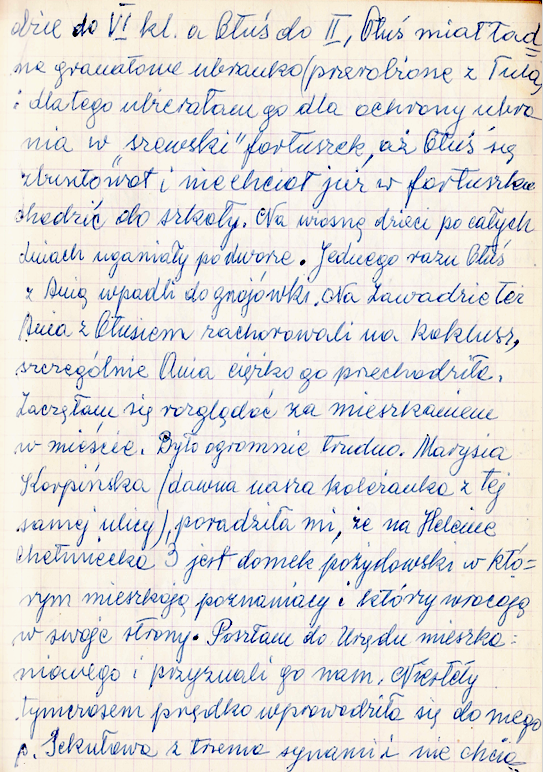 dzie do VI kl. a Oluś do II, Oluś miał ład=
ne granatowe ubranko (przerobione z Tula)
i dlatego ubierałam go dla ochrony ubra-
nia w "szewski" fartuszek, aż Oluś się
zbuntował i nie chciał już w fartuszku
chodzić do szkoły. Na wiosnę dzieci po całych
dniach uganiały po dworze. Jednego razu Oluś
z Anią wpadli do gnojówki. Na Zawadzie też
Ania z Olusiem zachorowali na koklusz,
szczególnie Ania ciężko go przechodziła.
Zaczęłam się rozglądać za mieszkaniem
w mieście. Było ogromnie trudno. Marysia
Karpińska (dawna nasza koleżanka z tej
samej ulicy), poradziła mi, że na Helenie
Chełmiecka 3 jest domek pożydowski w któ=
rym mieszkają poznaniacy i którzy wracają
w swoje strony. Poszłam do Urzędu mieszka=
niowego i przyznali go nam. Niestety
tymczasem prędko wprowadziła się do niego
p. Sekułowa z trzema synami i nie chcia